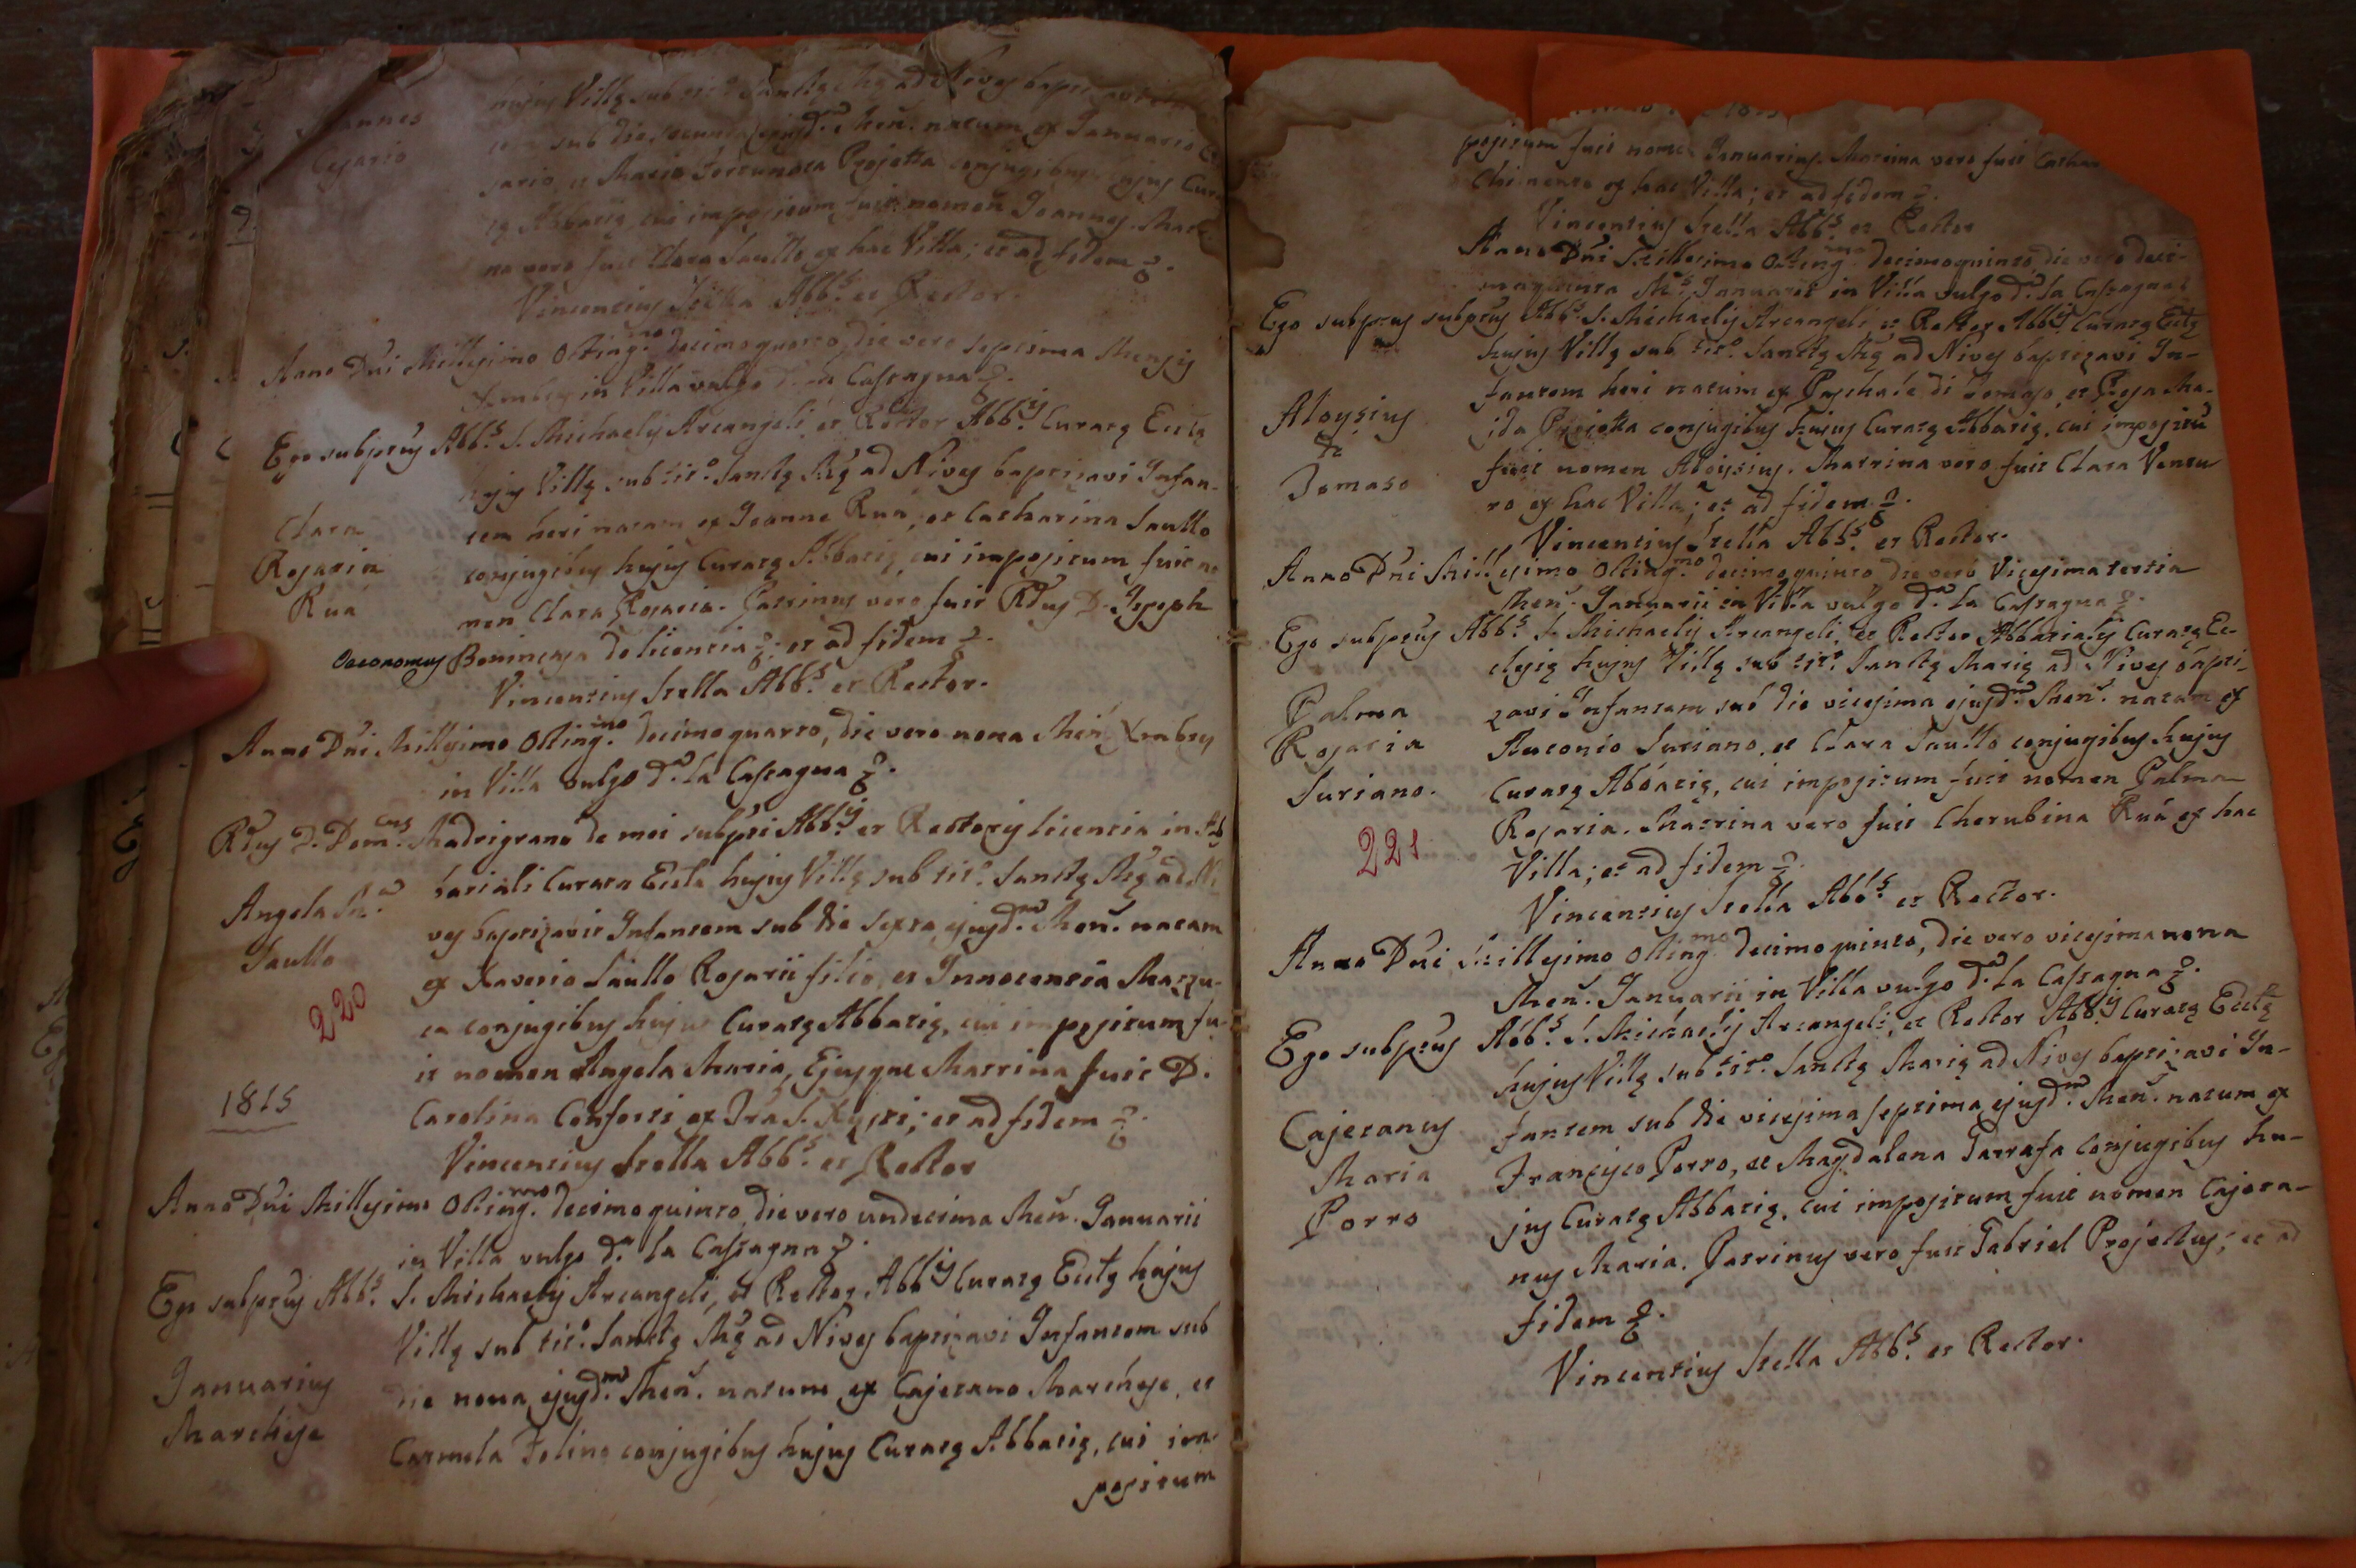 Joannes
Cesario
hujus Villę sub tit.º Sanctę Mę ad Nives baptizavi
sub die secunda ejusd.m Men. natum ex Januario Ce
sario, et Maria Fortunata Projetta conjugibus hujus Cura
tę Abbatię, cui impositum fuit nomen Joannes. Matri
na vero fuit Clara Saullo ex hac Villa; et ad fidem &.
Vincentius Stella Abb.s et Rector.
Anno Dñi Millesimo Octing.mo decimoquarto, die vero septima Mensis
Xmbris in Villa vulgo d.a la Castagna &.
Ego subp̃tus Abb.s S. Michaelis Arcangeli, et Rector Abb.is Curatę Eccłę
hujus Villę sub tit.º Sanctę Mę ad Nives baptizavi Infan-
Clara
Rosaria
Rua
tem heri natam ex Joanne Rua, et Catharina Saullo
conjugibus hujus Curatę Abbatię, cui impositum fuit no
men Clara Rosaria. Patrinus vero fuit Rd̃us D. Joseph
Oeconomus Bonincasa de licentia &; et ad fidem &.
Vincentius Stella Abb.s et Rector.
Anno Dñi Millesimo Octing.mo decimoquarto, die vero nona Men. Xmbris
in Villa vulgo d.a la Castagna &.
Rd̃us D. Dom.cus Madrigrano de mei subp̃ti Abb.is et Rectoris licentia in Ab
batiali Curata Eccła hujus Villę sub tit.º Sanctę Mę ad Ni
Angela M.a
Saullo
ves baptizavit Infantem sub die sexta ejusd.m Men. natam
ex Xaverio Saullo Rosarii filio, et Innocentia Mazzu-
220
ca conjugibus hujus Curatę Abbatię, cui impositum fu-
it nomen Angela Maria, Ejusque Matrina fuit D.
1815
Carolina Conforti ex Trã S. Xysti; et ad fidem &.
Vincentius Stella Abb.s et Rector
Anno Dñi Millesimo Octing.mo decimoquinto, die vero undecima Men. Januarii
in Villa vulgo d.a la Castagna &.
Ego subp̃tus Abb.s S. Michaelis Arcangeli, et Rector Abb.is Curatę Eccłę hujus
Villę sub tit.º Sanctę Mę ad Nives baptizavi Infantem sub
Januarius
Marchese
die nona ejusd.m Men. natum ex Cajetano Marchese, et
Carmela Folino conjugibus hujus Curatę Abbatię, cui im-
positum
positum fuit nomen Januarius. Matrina vero fuit Cathar
Chimento ex hac Villa; et ad fidem &.
Vincentius Stella Abb.s et Rector
Anno Dñi Millesimo Octing.mo decimoquinto, die vero deci-
maquinta M.s Januarii in Villa vulgo d.a la Castagna
Ego subptus subptus Abb.s S. Michaelis Arcangeli, et Rector Abb.is Curatę Eccłę
hujus Villę sub tit.º Sanctę Mę ad Nives baptizavi In-
Aloysius
Di
Tomaso
fantem heri natum ex Paschale di Tomaso, et Rosa Ma-
ida Projetta conjugibus hujus Curatę Abbatię, cui impositũ
fuit nomen Aloysius. Matrina vero fuit Clara Ventu
ro ex hac Villa; et ad fidem &.
Vincentius Stella Abb.s et Rector.
Anno Dñi Millesimo Octing.mo decimoquinto, die vero Vicesima tertia
Men. Januarii in Villa vulgo d.a la Castagna &.
Ego subp̃tus Abb.s S. Michaelis Arcangeli, et Rector Abbatialis Curatę Ec-
clesię hujus Villę sub tit.º Sanctę Marię ad Nives bapti-
Palma
Rosaria
Suriano.
zavi Infantem sub die vicesima ejusd.m Men. natam ex
Antonio Suriano, et Clara Saullo conjugibus hujus
Curatę Abbatię, cui impositum fuit nomen Palma
221
Rosaria. Matrina vero fuit Cherubina Rua ex hac
Villa; et ad fidem &.
Vincentius Stella Abb.s et Rector.
Anno Dñi Millesimo Octing.mo decimoquinto, die vero vicesimanona
Men. Januarii in Villa vulgo d.a la Castagna &.
Ego subp̃tus Abb.s S. Michaelis Arcangeli, et Rector Abb.is Curatę Eccłę
hujus Villę sub tit.º Sanctę Marię ad Nives baptizavi In-
Cajetanus
Maria
Porro
fantem sub die vicesima septima ejusd.m Men. natum ex
Francisco Porro, et Magdalena Garrafa conjugibus hu-
jus Curatę Abbatię, cui impositum fuit nomen Cajeta-
nus Maria. Patrinus vero fuit Gabriel Projettus; et ad
fidem &.
Vincentius Stella Abb.s et Rector.